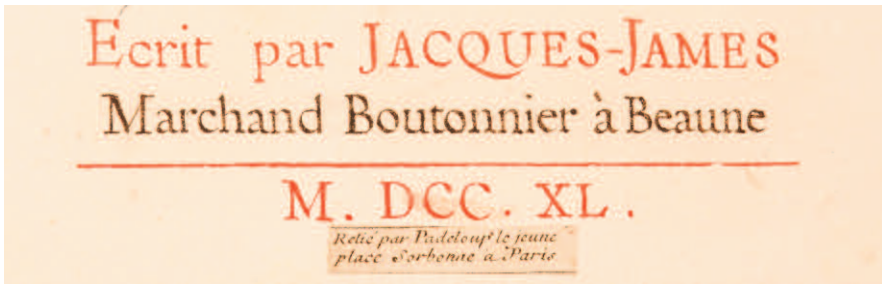 Ecrit par JACQUES-JAMES
Marchand Boutonnier à Beaune
M. DCC. XL.
Relié par Padeloup le jeune
place Sorbonne a Paris